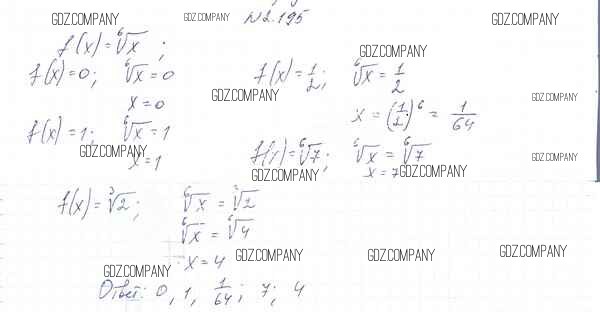 №2.195
GDZ.COMPANY GDZ.COMPANY GDZ.COMPANY
f(x) = ⁶√x ;
GDZ.COMPANY
f(x) = 0; ⁶√x = 0
x = 0
f(x) = 1/2; ⁶√x = 1/2
GDZ.COMPANY GDZ.COMPANY
x = (1/2)⁶ = 1/64
f(x) = 1; ⁶√x = 1
x = 1
GDZ.COMPANY
f(x) = ⁶√7; ⁶√x = ⁶√7
x = 7
GDZ.COMPANY GDZ.COMPANY GDZ.COMPANY
f(x) = ³√2; ⁶√x = ³√2
⁶√x = ⁶√4
x = 4
GDZ.COMPANY GDZ.COMPANY GDZ.COMPANY GDZ.COMPANY
Ответ: 0, 1, 1/64; 7; 4